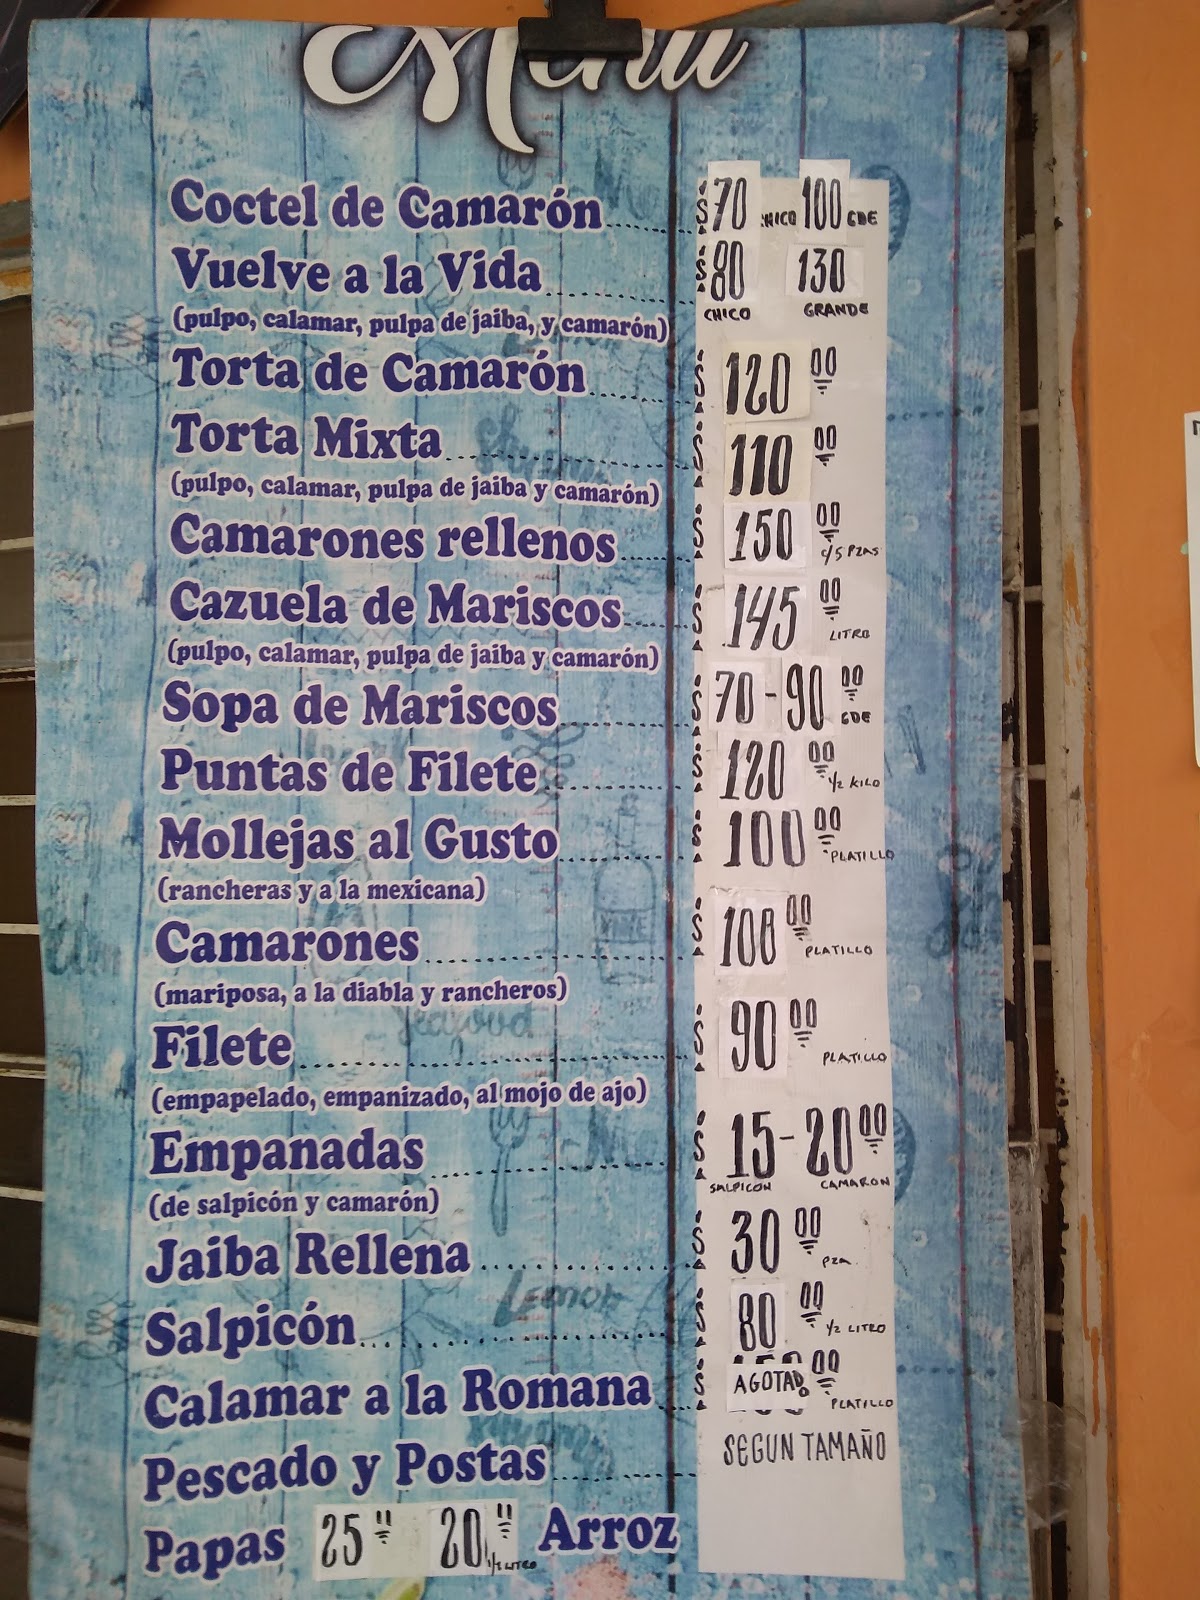 Menú
Coctel de Camarón $70 CHICO 100 GDE
Vuelve a la Vida $80 CHICO 130 GRANDE
(pulpo, calamar, pulpa de jaiba, y camarón)
Torta de Camarón $120 00
Torta Mixta $110 00
(pulpo, calamar, pulpa de jaiba y camarón)
Camarones rellenos $150 00 c/5 PZAS
Cazuela de Mariscos $145 00 LITRO
(pulpo, calamar, pulpa de jaiba y camarón)
Sopa de Mariscos $70 - 90 00 GDE
Puntas de Filete $120 00 1/2 KILO
Mollejas al Gusto $100 00 PLATILLO
(rancheras y a la mexicana)
Camarones $100 00 PLATILLO
(mariposa, a la diabla y rancheros)
Filete $90 00 PLATILLO
(empapelado, empanizado, al mojo de ajo)
Empanadas $15 - 20 00 SALPICON CAMARON
(de salpicón y camarón)
Jaiba Rellena $30 00 PZA.
Salpicón $80 00 1/2 LITRO
Calamar a la Romana $AGOTADO 00 PLATILLO
Pescado y Postas SEGUN TAMAÑO
Papas 25 20 1/2 LITRO Arroz